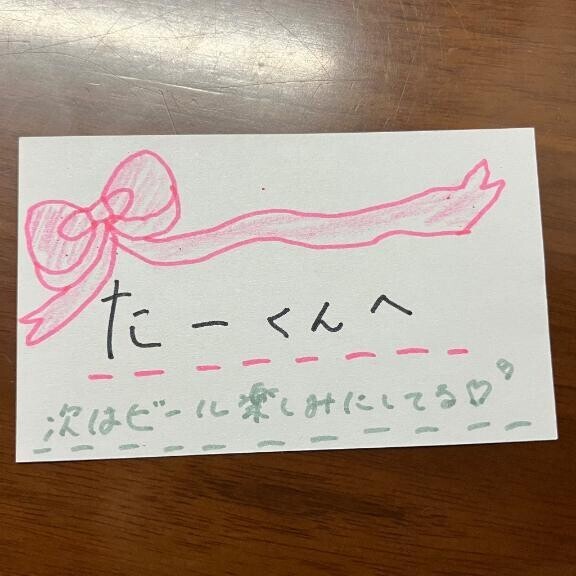 たーくんへ
次はビール楽しみにしてる♡♡